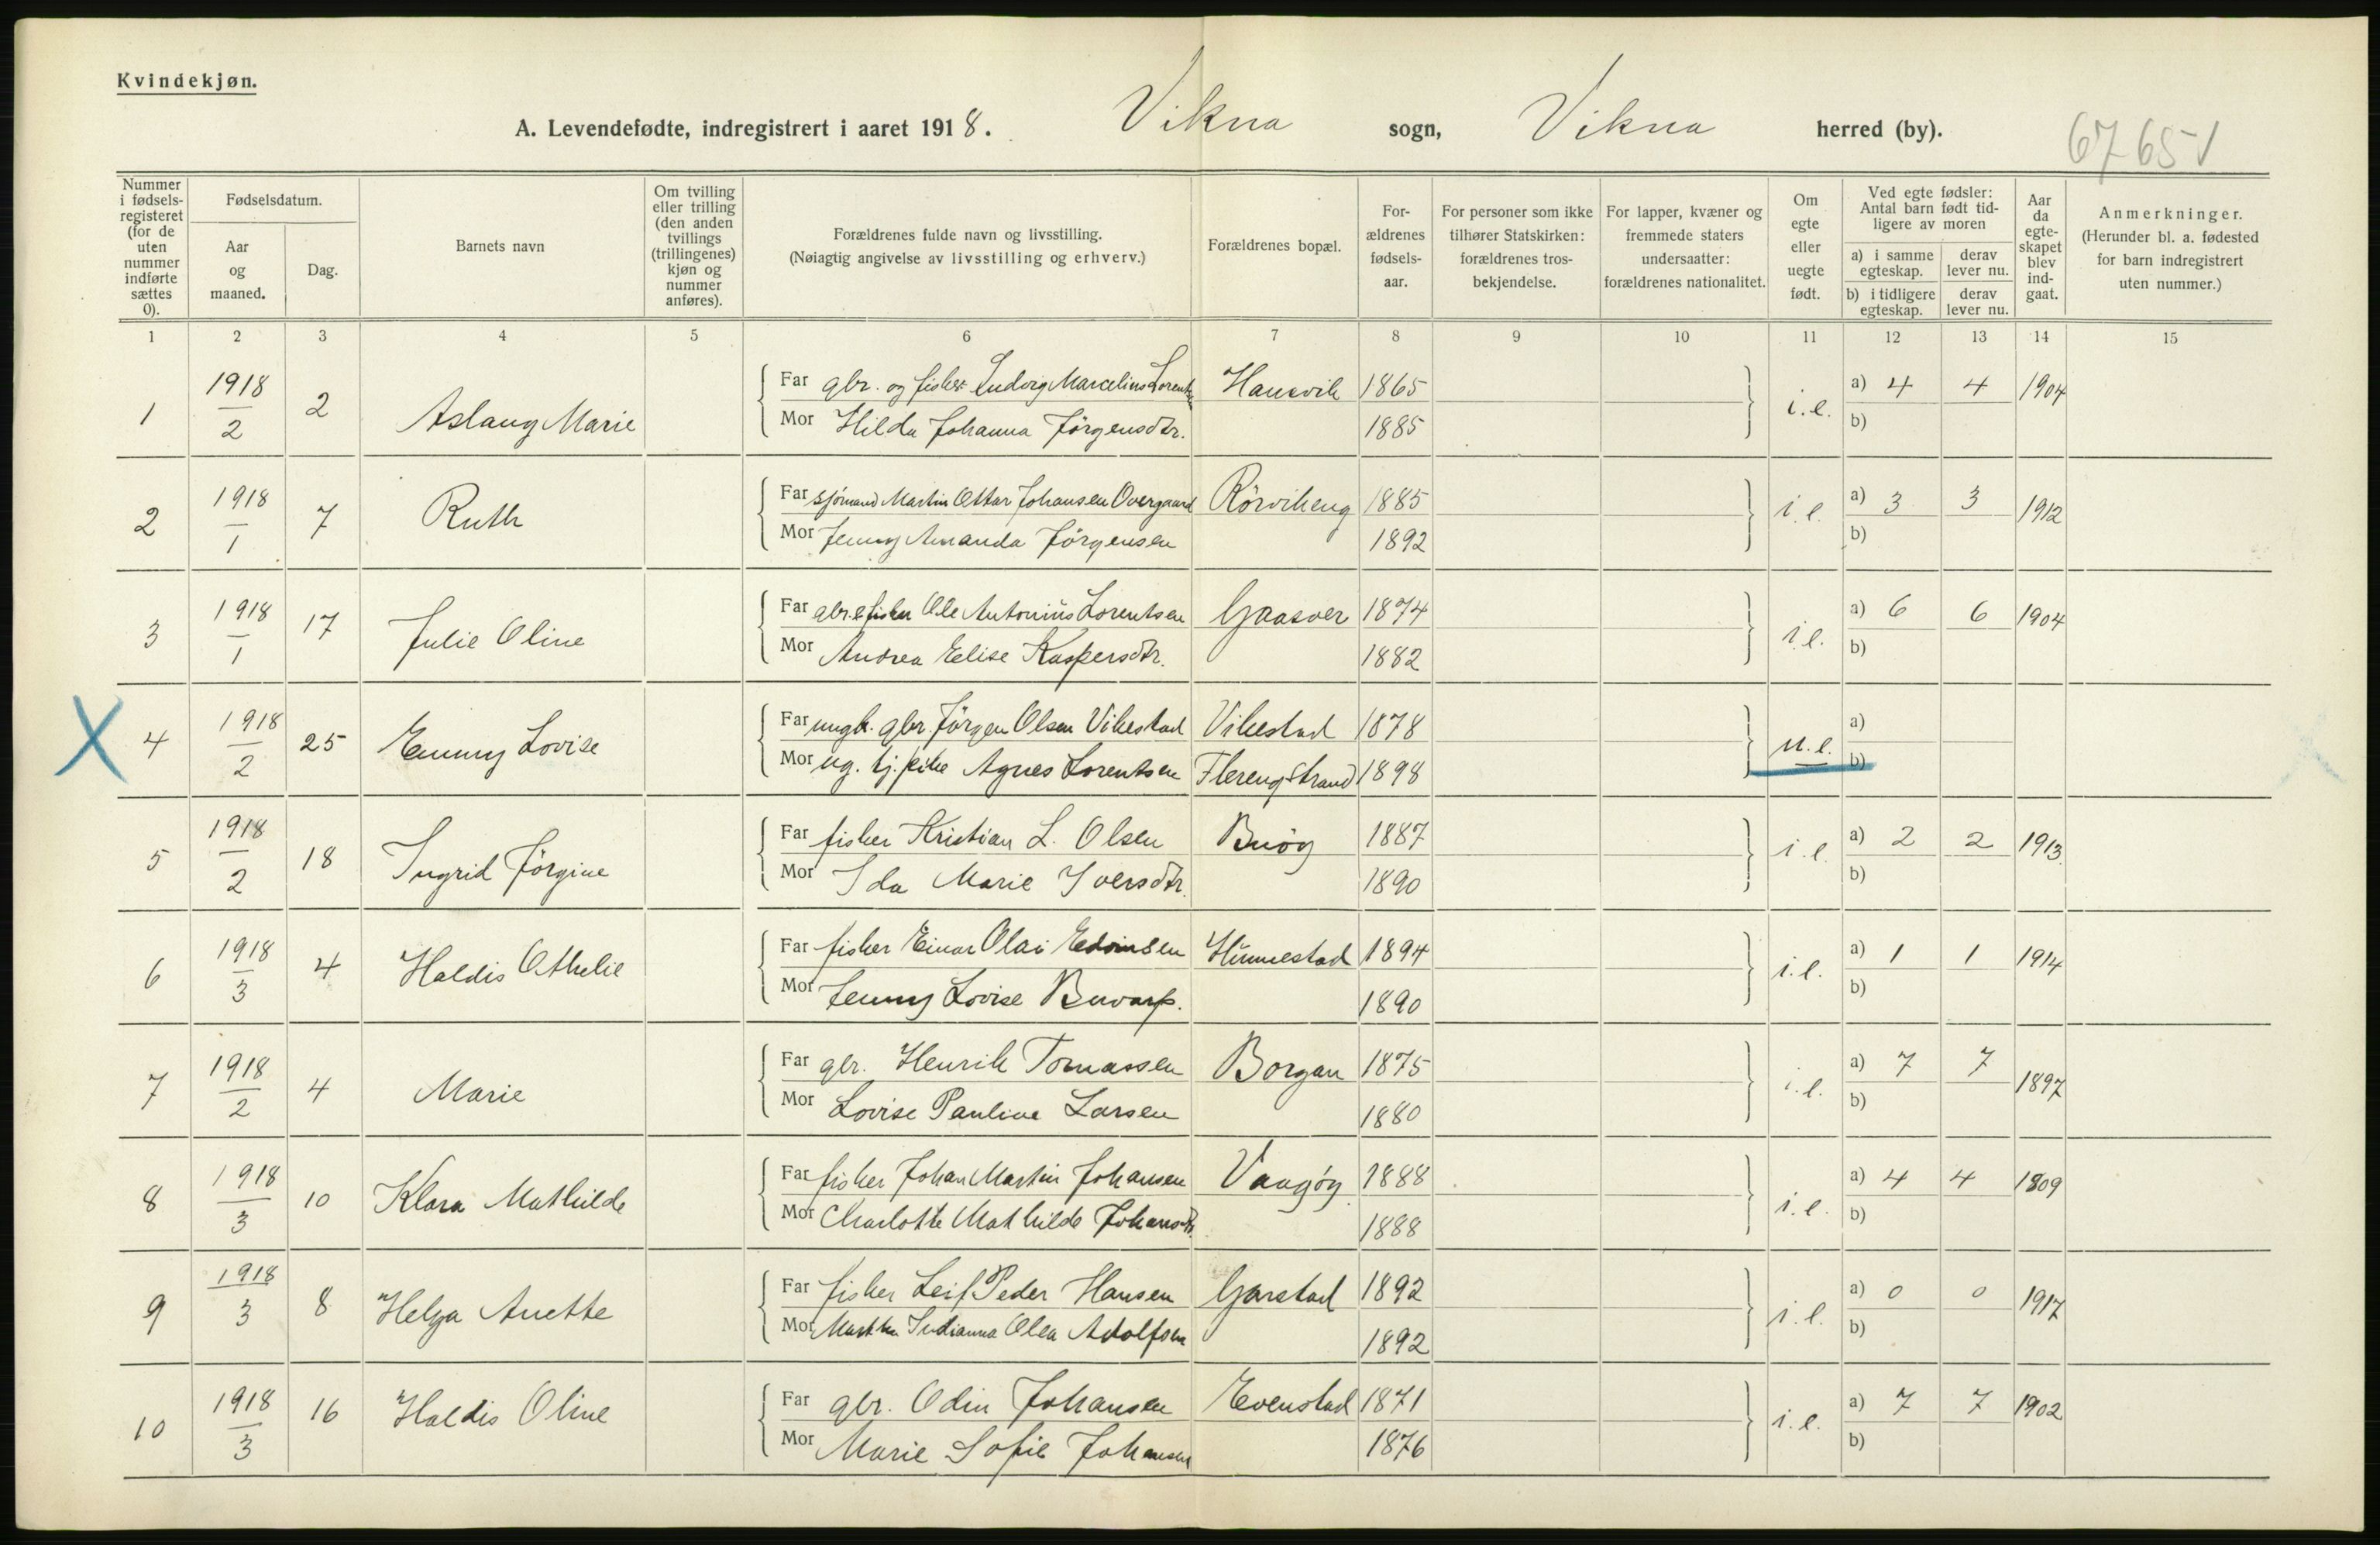 Kvindekjøn.
A. Levendefødte, indregistrert i aaret 1918. Vikna sogn, Vikna herred (by).
67651
Nummer i fødsels-registeret (for de uten nummer indførte sættes 0).
Fødselsdatum.
Aar og maaned.
Dag.
Barnets navn
Om tvilling eller trilling (den anden tvillings (trillingenes) kjøn og nummer anføres).
Forældrenes fulde navn og livsstilling.
(Nøiagtig angivelse av livsstilling og erhverv.)
Forældrenes bopæl.
For-ældrenes fødsels-aar.
For personer som ikke tilhører Statskirken: forældrenes tros-bekjendelse.
For lapper, kvæner og fremmede staters undersaatter: forældrenes nationalitet.
Om egte eller uegte født.
Ved egte fødsler: Antal barn født tid-ligere av moren
a) i samme egteskap.
derav lever nu.
b) i tidligere egteskap.
derav lever nu.
Aar da egte-skapet blev ind-gaat.
Anmerkninger.
(Herunder bl. a. fødested for barn indregistrert uten nummer.)
1 2 3 4 5 6 7 8 9 10 11 12 13 14 15
1 1918/2 2 Aslaug Marie
Far gbr. og fisker Ludvig Marcelius Lorents Hansvik 1865 i.e. a) 4 4 1904
Mor Hilda Johanna Jörgensdtr. 1885 b)
2 1918/1 7 Ruth
Far sjømand Martin Ottar Johansen Overgaard Rörvikeng 1885 i.e. a) 3 3 1912
Mor Jenny Amanda Jörgensen 1892 b)
3 1918/1 17 Julie Oline
Far gbr. & fisker Ole Antonius Lorentsen Gaasver 1874 i.e. a) 6 6 1904
Mor Andrea Elise Kaspersdtr. 1882 b)
X 4 1918/2 25 Emmy Lovise
Far ungk. gbr. Jörgen Olsen Vikestad Vikestad 1878 u.e. a)
Mor ug. tj. pike Agnes Lorentsen Flerengstrand 1898 b)
5 1918/2 18 Ingrid Jörgine
Far fisker Kristian L. Olsen Buöy 1887 i.e. a) 2 2 1913
Mor Ida Marie Iversdtr. 1890 b)
6 1918/3 4 Haldis Othelie
Far fisker Einar Olai Edvinsen Hunnestad 1894 i.e. a) 1 1 1914
Mor Jenny Lovise Buvarp. 1890 b)
7 1918/2 4 Marie
Far gbr. Henrik Tomassen Borgan 1875 i.e. a) 7 7 1897
Mor Lovise Pauline Larsen 1880 b)
8 1918/3 10 Klara Mathilde
Far fisker Johan Martin Johansen Vaagöy 1888 i.e. a) 4 4 1909
Mor Charlotte Mathilde Johansdtr. 1888 b)
9 1918/3 8 Helga Anette
Far fisker Leif Peder Hansen Garstad 1892 i.e. a) 0 0 1917
Mor Martha Indianna Olea Adolfsen 1892 b)
10 1918/3 16 Haldis Oline
Far gbr. Odin Johansen Evenstad 1871 i.e. a) 7 7 1902
Mor Marie Sofie Johansen 1876 b)